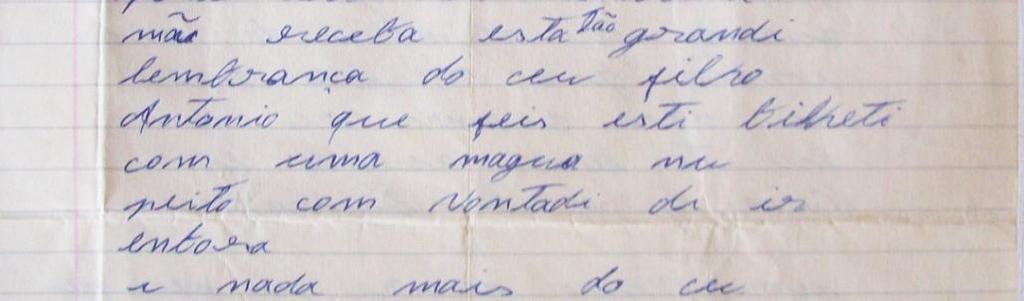 mãe receba esta tão grandi
lembrança do ceu filho
Antonio que feis esti bilheti
com uma magua nu
peito com vontadi di ir
entora
i nada mais do ceu